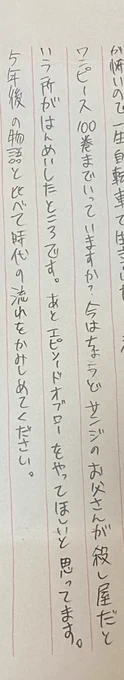 が怖いので一生自転車で生き
ワンピース100巻までいっていますか?今はちょうどサンジのお父さんが殺し屋だと
いう所がはんめいしたところです。あとエピソードオブローをやってほしいと思ってます。
5年後の物語と比べて時代の流れをかみしめてください。